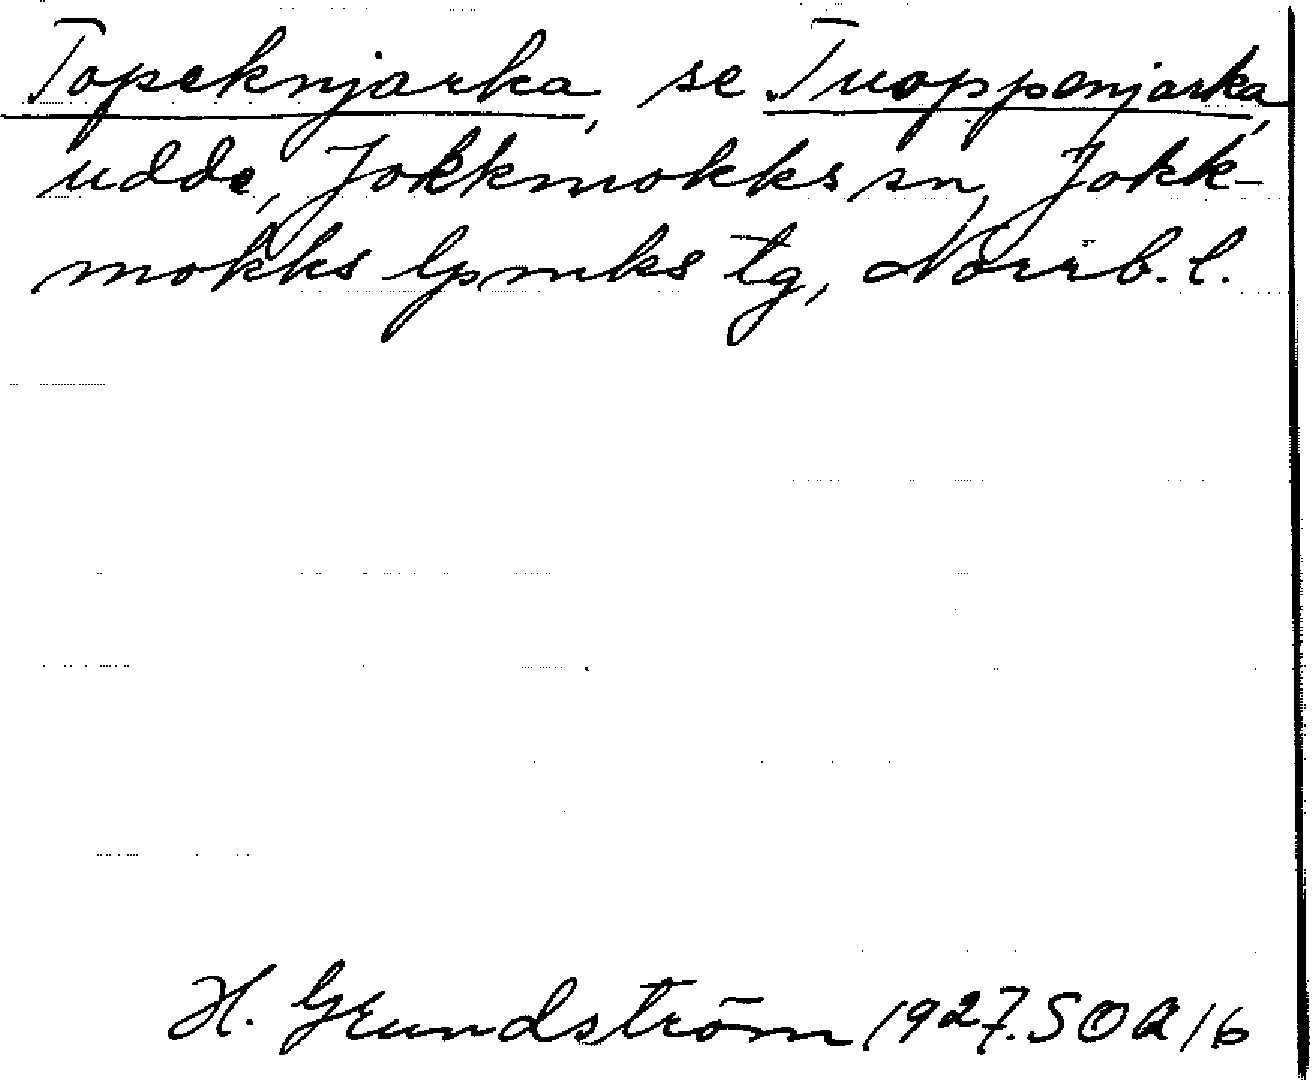 Topeknjarka, se Tuoppenjarka,
udde, Jokkmokks sn, Jokk-
mokks lpmks tg, Norrb. l.
H. Grundström 1927. SOA 16